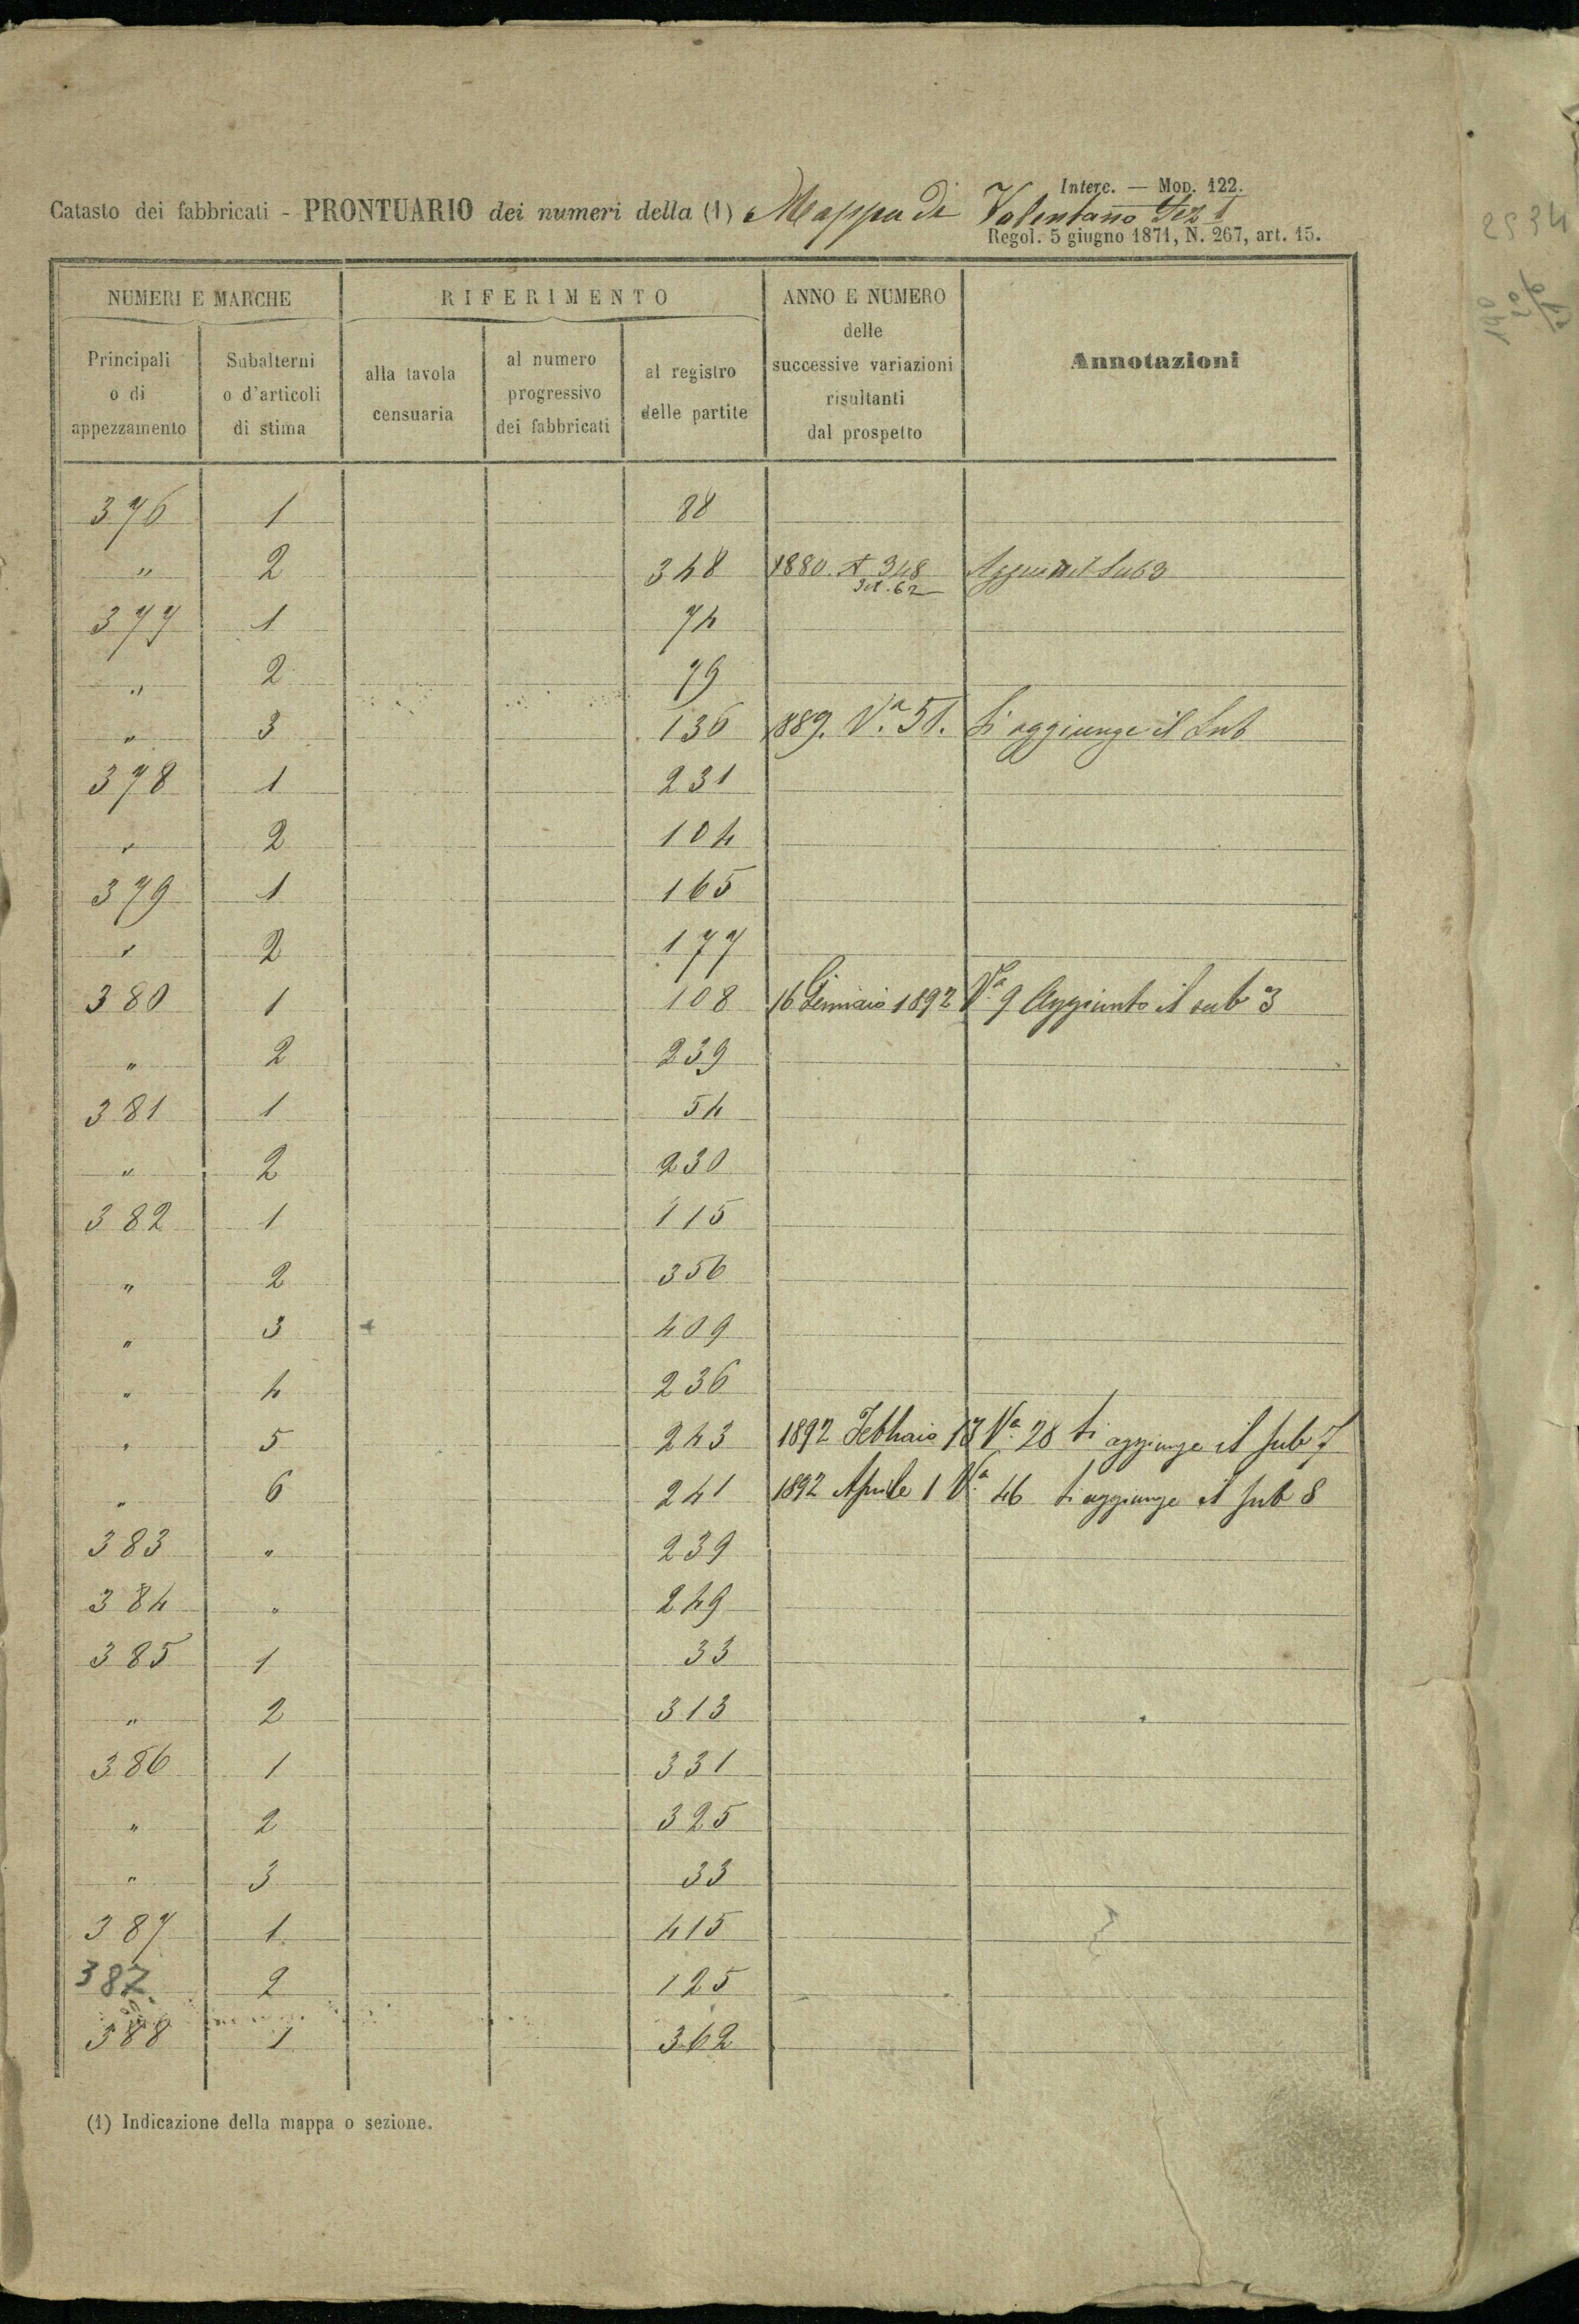 Interc. — Mod. 122.
Catasto dei fabbricati - PRONTUARIO dei numeri della (1) Mappa di Valentano Sez 1
Regol. 5 giugno 1871, N. 267, art. 15.
NUMERI E MARCHE RIFERIMENTO ANNO E NUMERO delle successive variazioni risultanti dal prospetto Annotazioni
Principali o di appezzamento Subalterni o d'articoli di stima alla tavola censuaria al numero progressivo dei fabbricati al registro delle partite
376 1 88
" 2 348 1880. 348 62 Sub 3
377 1 74
" 2 79
" 3 136 1889. Va. 51. Si aggiunge il Sub
378 1 231
" 2 104
379 1 165
" 2 177
380 1 108 16 Gennaio 1892 Va. 9 Aggiunto il sub 3
" 2 239
381 1 54
" 2 230
382 1 115
" 2 356
" 3 409
" 4 236
" 5 243 1892 Febbraio 13 Va. 28 Si aggiunge il sub 7
" 6 241 1892 Aprile 1 Va. 46 Si aggiunge il sub 8
383 " 239
384 " 249
385 1 33
" 2 313
386 1 331
" 2 325
" 3 33
387 1 415
387 2 125
388 1 362
(1) Indicazione della mappa o sezione.